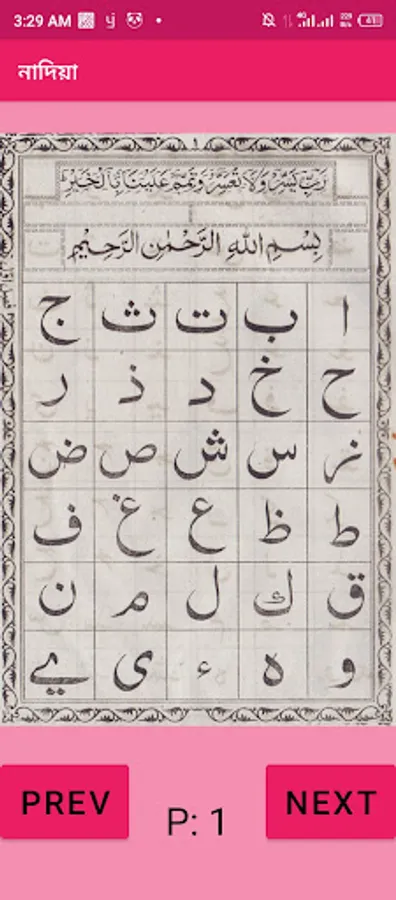 3:29 AM
নাদিয়া
١
رَبِّ يَسِّرْ وَلَا تُعَسِّرْ وَتَمِّمْ عَلَيْنَا بِالْخَيْرِ
بِسْمِ اللهِ الرَّحْمٰنِ الرَّحِيْمِ
ا ب ت ث ج
ح خ د ذ ر
ز س ش ص ض
ط ظ ع غ ف
ق ك ل م ن
و ه ء ى ے
PREV P: 1 NEXT